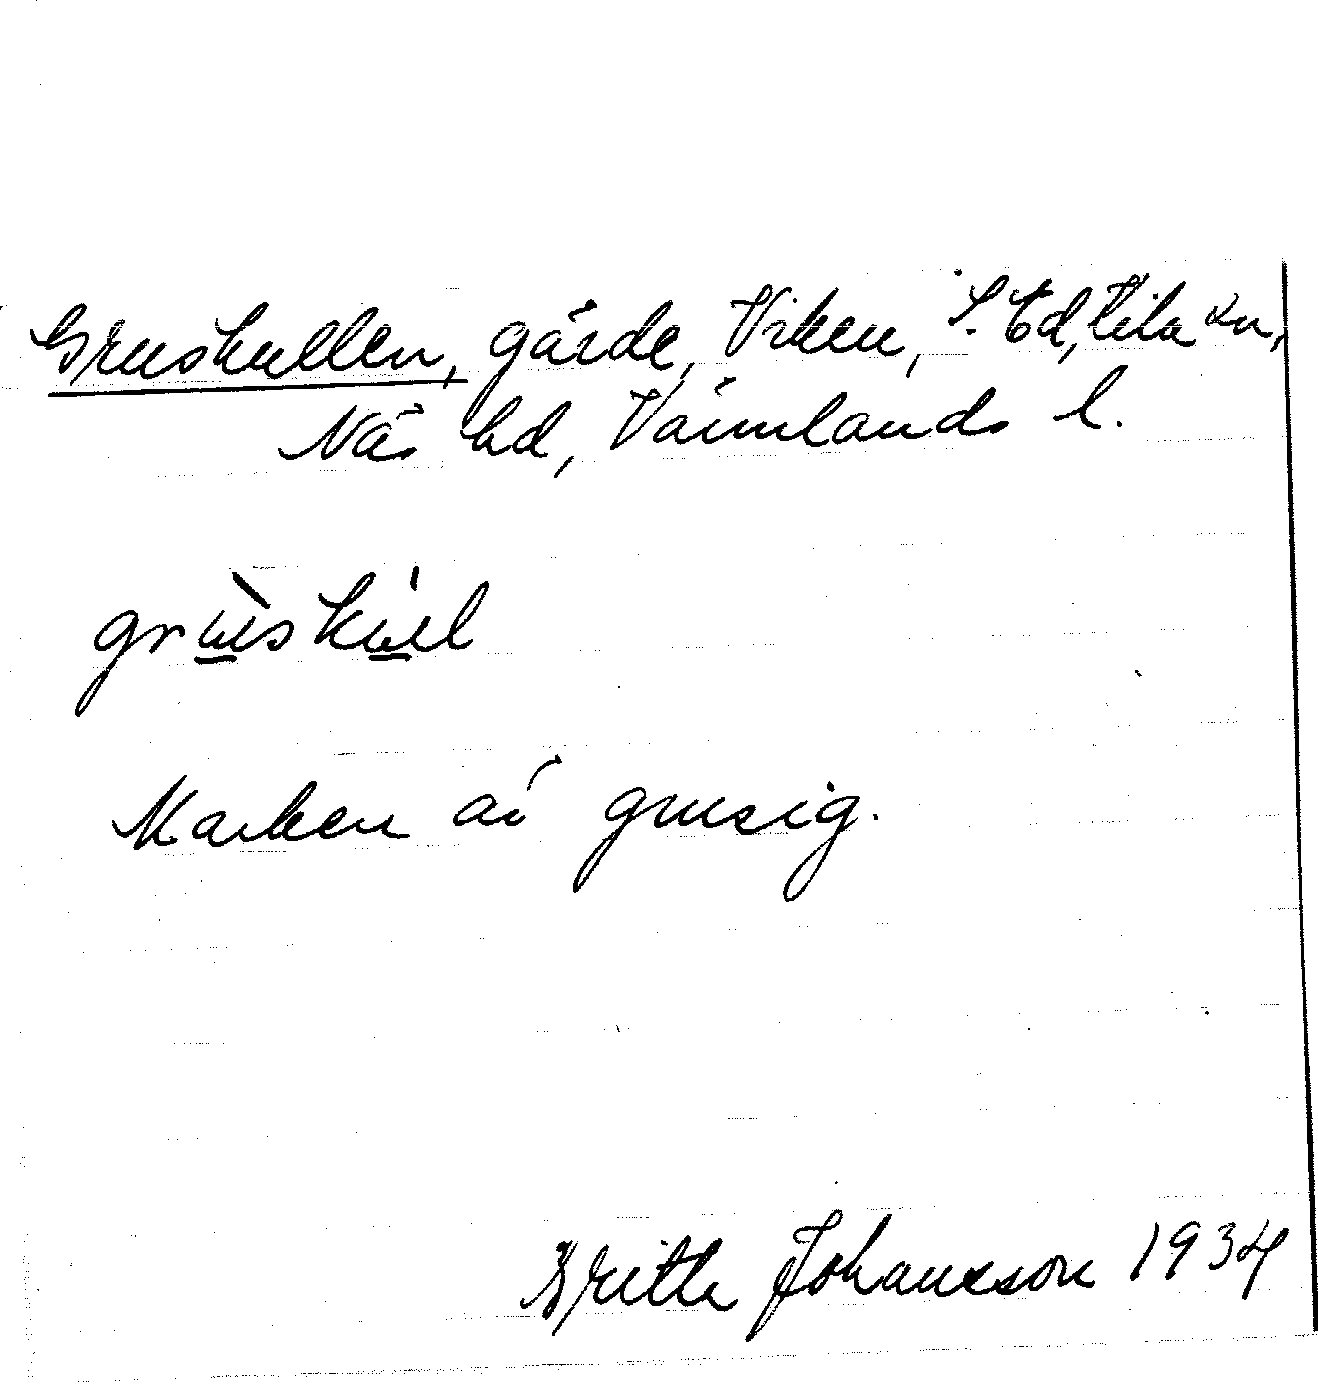 Gruskullen, gärde, Viken, S. Ed, Kila sn,
Näs hd, Värmlands l.
grùskúl
Marken är grusig.
Britta Johansson 1934